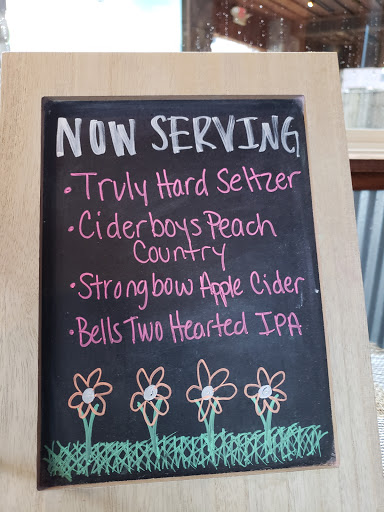 NOW SERVING
• Truly Hard Seltzer
• Ciderboys Peach
Country
• Strongbow Apple Cider
• Bells Two Hearted IPA